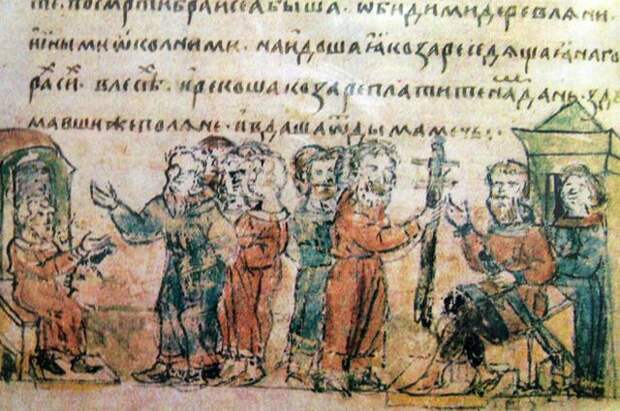 ти. по смр҃ти братьꙗ сеꙗ быша ѡбидими деревлѧми.
и инѣми ѡколними. и наидоша ꙗ козаре седѧщаꙗ на го
рах сих. в лесѣх. и рекоша козаре платите намъ дань. зду
мавши же полѧне. и вдаша ѿ дыма мечь.